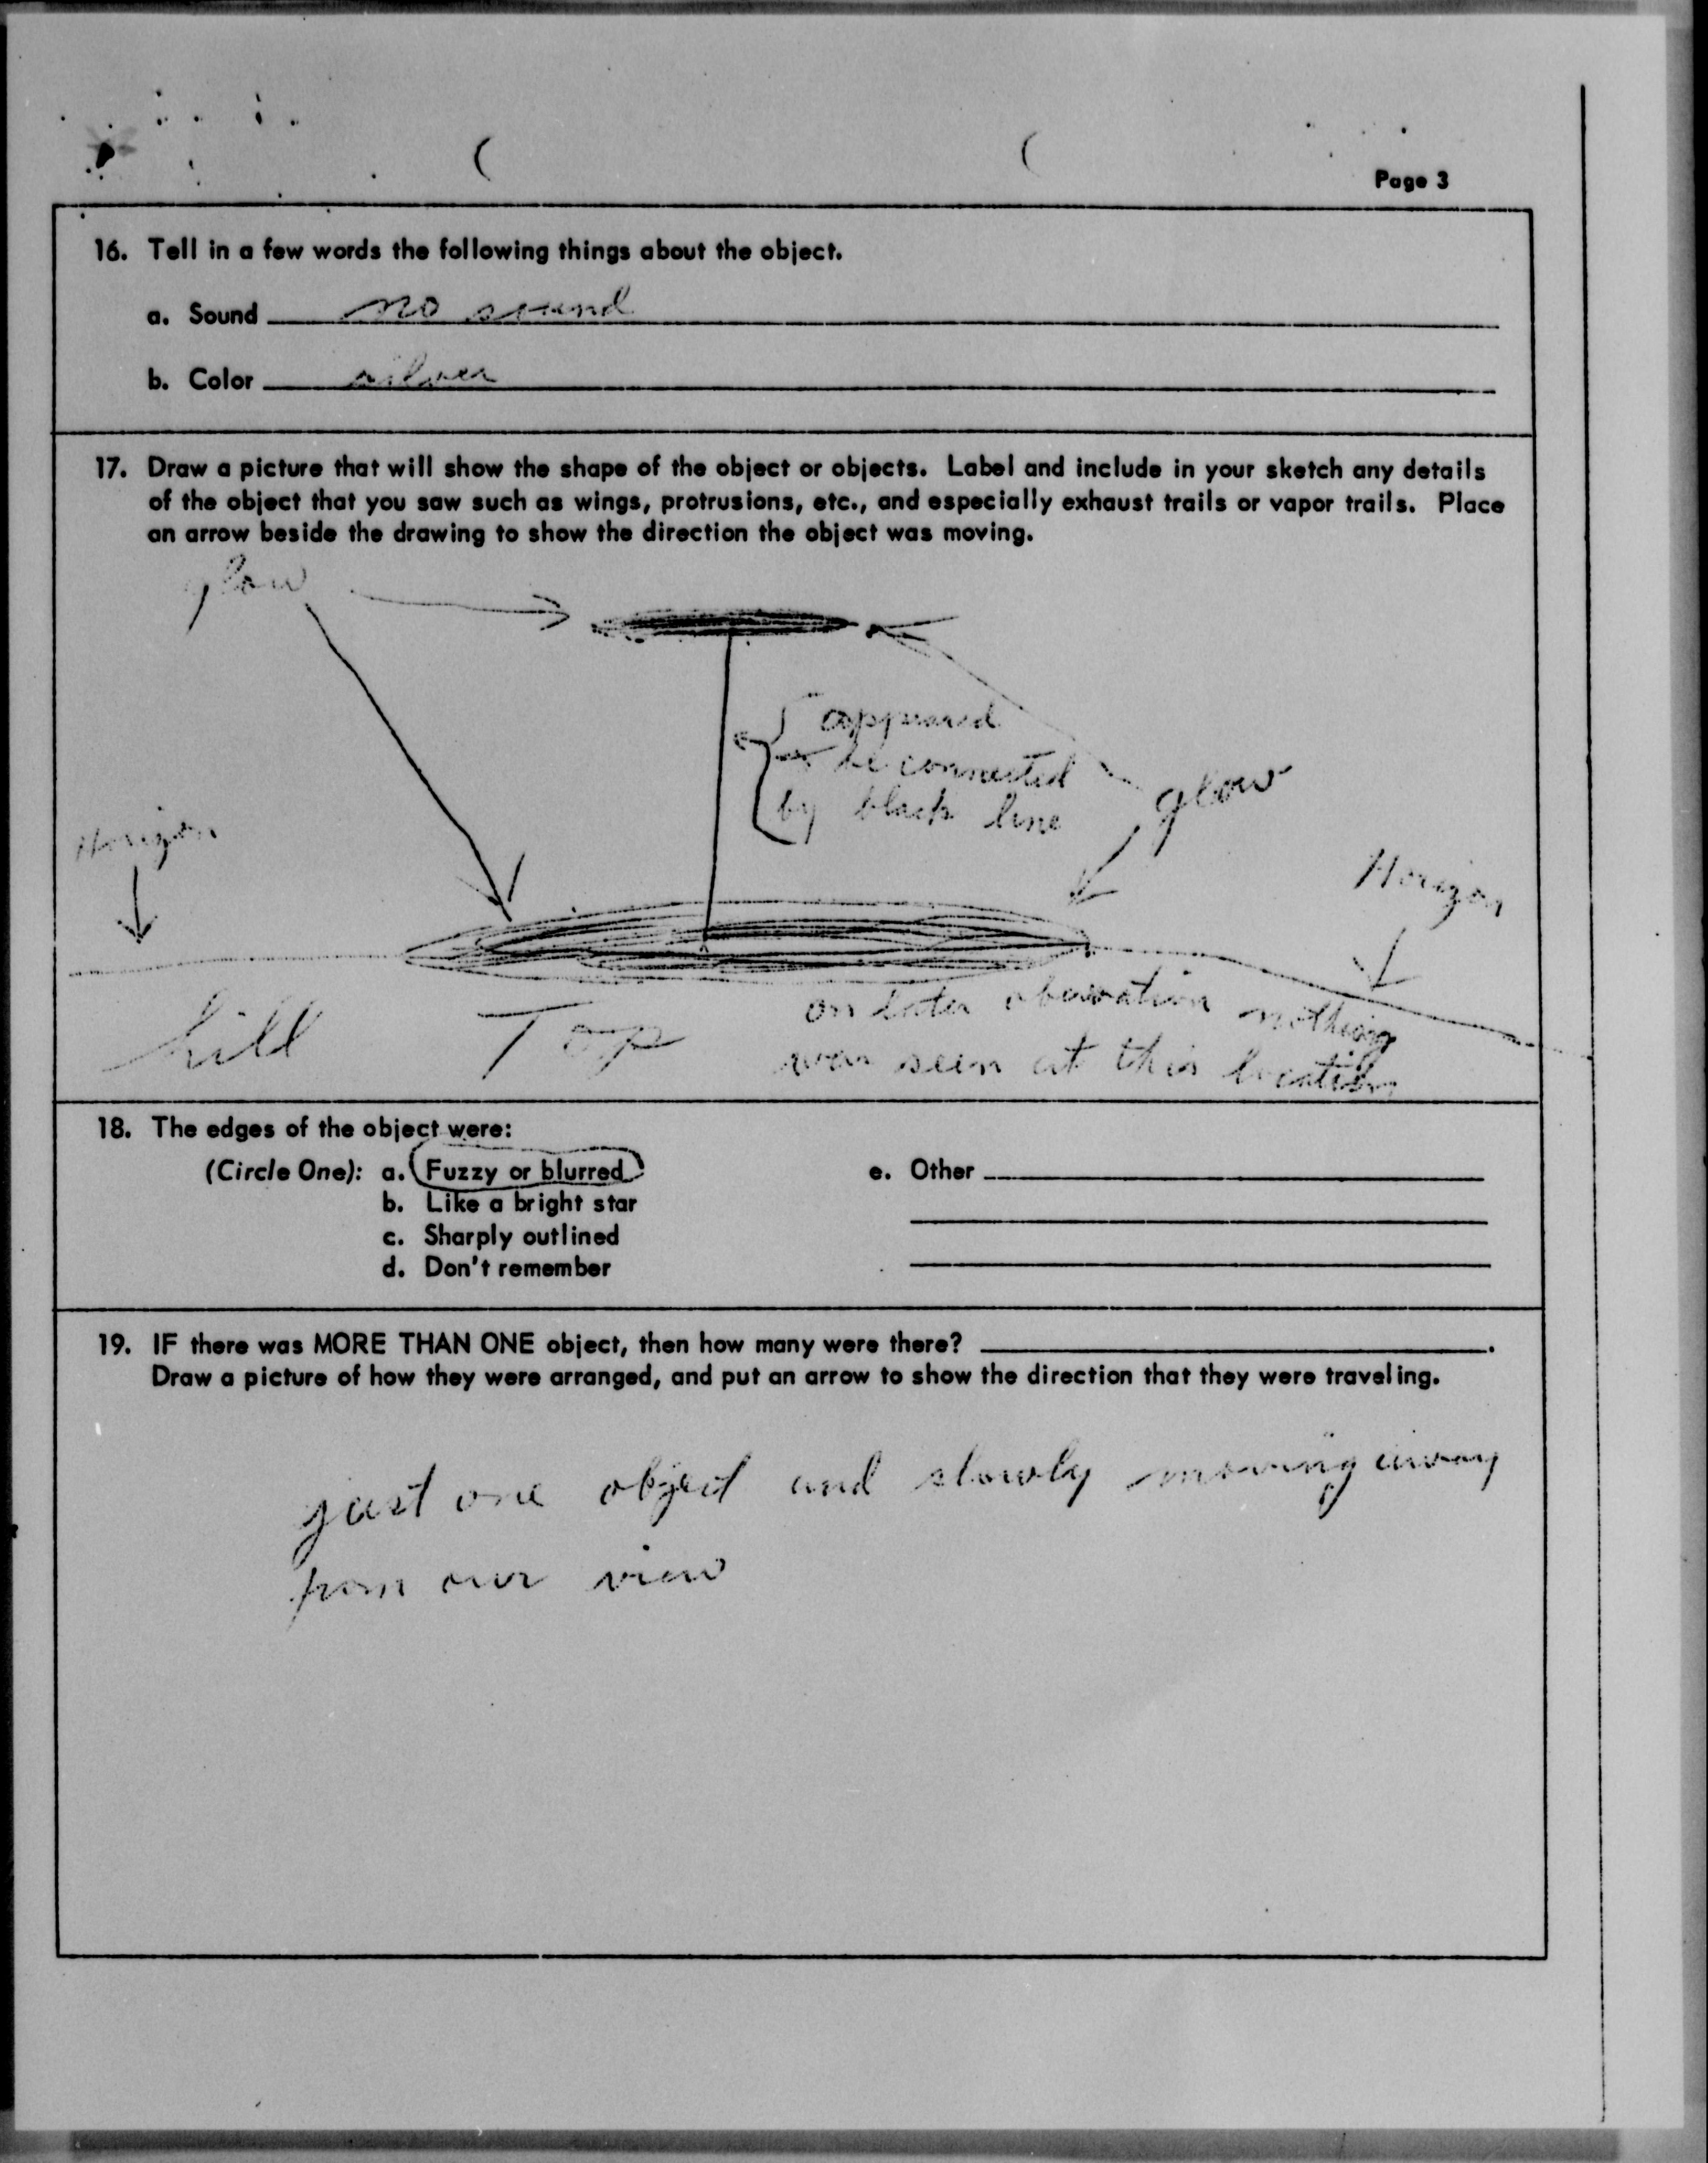 Page 3
16. Tell in a few words the following things about the object.
a. Sound no sound
b. Color silver
17. Draw a picture that will show the shape of the object or objects. Label and include in your sketch any details
of the object that you saw such as wings, protrusions, etc., and especially exhaust trails or vapor trails. Place
an arrow beside the drawing to show the direction the object was moving.
glow
appeared
to be connected
by black line
glow
Horizon
Horizon
hill Top
on later observation nothing
was seen at this location
18. The edges of the object were:
(Circle One): a. Fuzzy or blurred
b. Like a bright star
c. Sharply outlined
d. Don't remember
e. Other
19. IF there was MORE THAN ONE object, then how many were there?
Draw a picture of how they were arranged, and put an arrow to show the direction that they were traveling.
just one object and slowly moving away
from our view